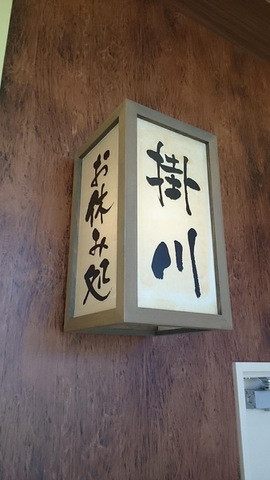 お休み処
掛川